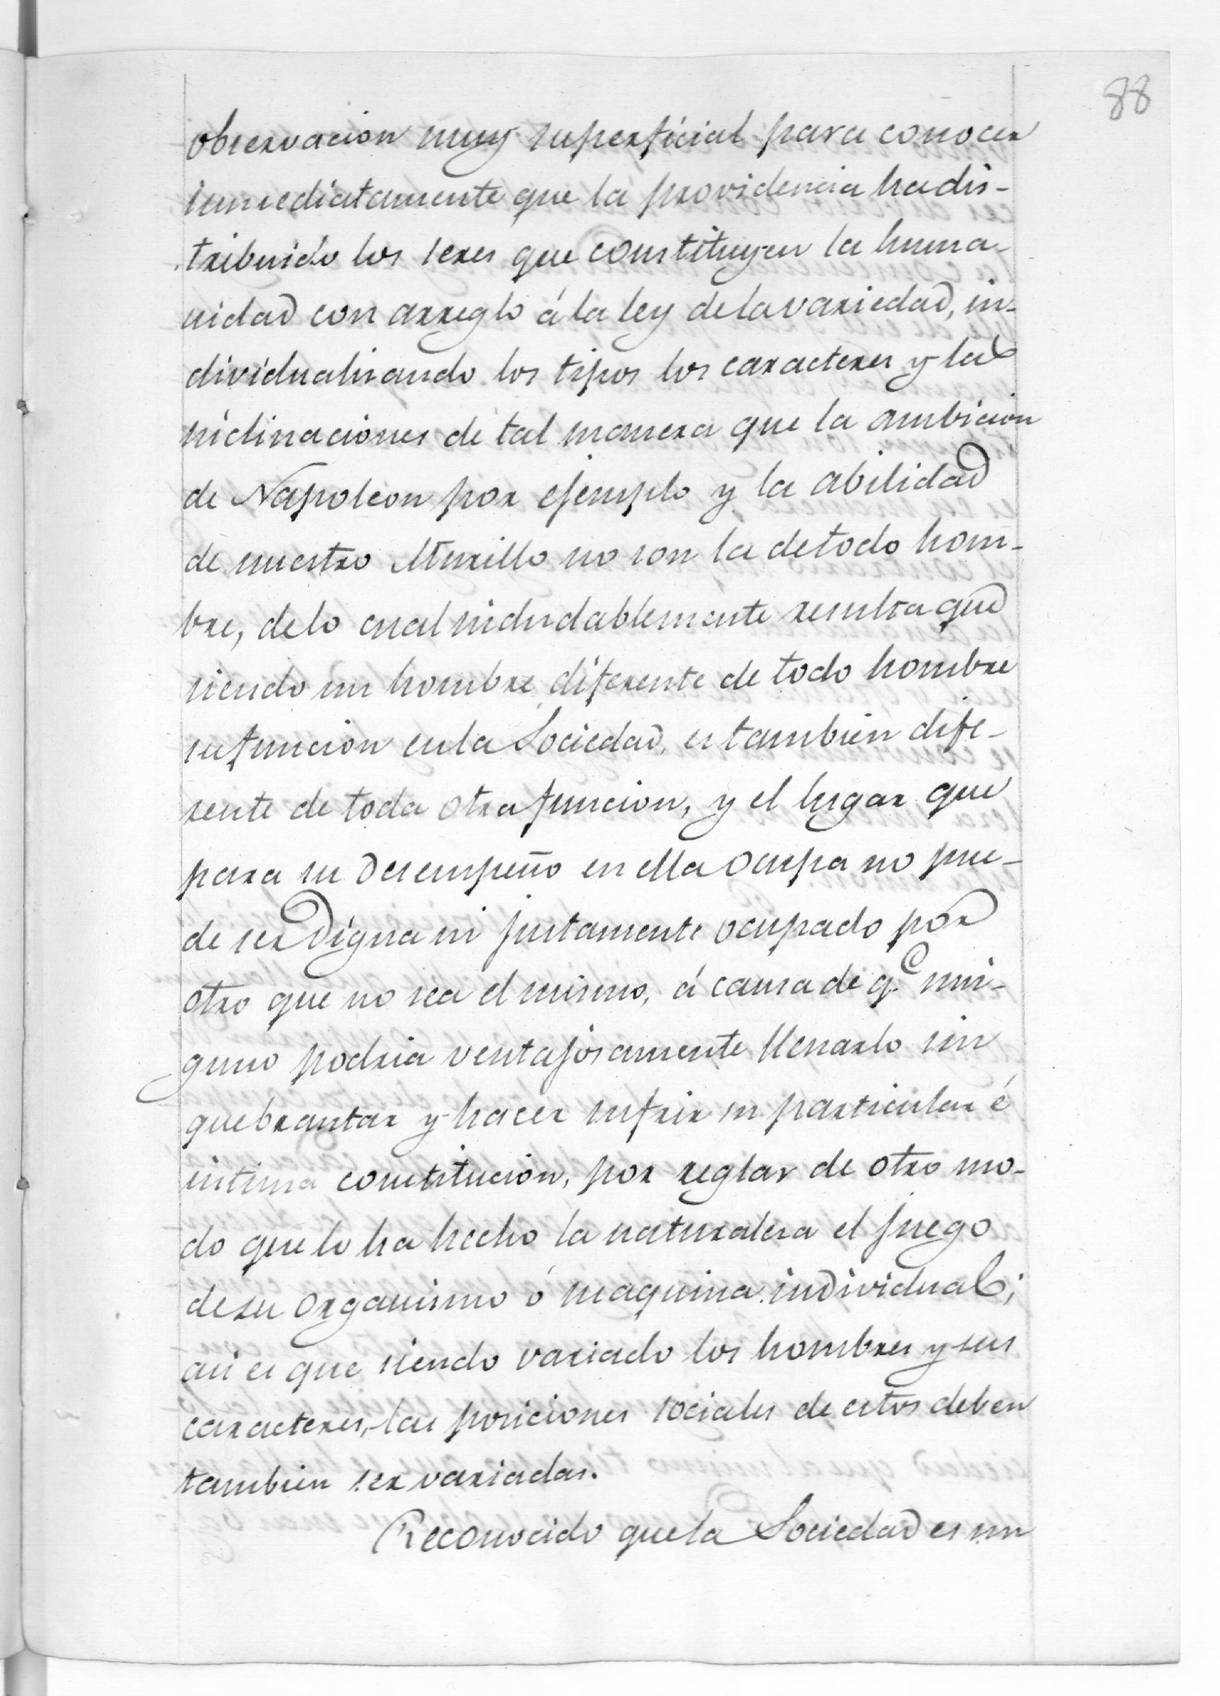 88
observacion muy superficial para conocer
inmediatamente que la providencia ha dis-
tribuido los seres que constituyen la huma-
nidad con arreglo á la ley de la variedad, in-
dividualizando los tipos los caracteres y las
inclinaciones de tal manera que la ambicion
de Napoleon por ejemplo y la abilidad
de nuestro Murillo no son la de todo hom-
bre, de lo cual indudablemente resulta que
siendo un hombre diferente de todo hombre
su funcion en la Sociedad, es tambien dife-
rente de toda otra funcion, y el lugar que
para su desempeño en ella ocupa no pue-
de ser digna ni justamente ocupado por
otro que no sea el mismo, á causa de q.e nin-
guno podria ventajosamente llenarlo sin
quebrantar y hacer sufrir su particular é
intima constitucion, por reglar de otro mo-
do que lo ha hecho la naturaleza el juego
de su organismo ó maquina individual;
asi es que siendo variado los hombres y sus
caracteres, las posiciones sociales de estos deben
tambien ser variadas.
Reconocido que la Sociedad es un